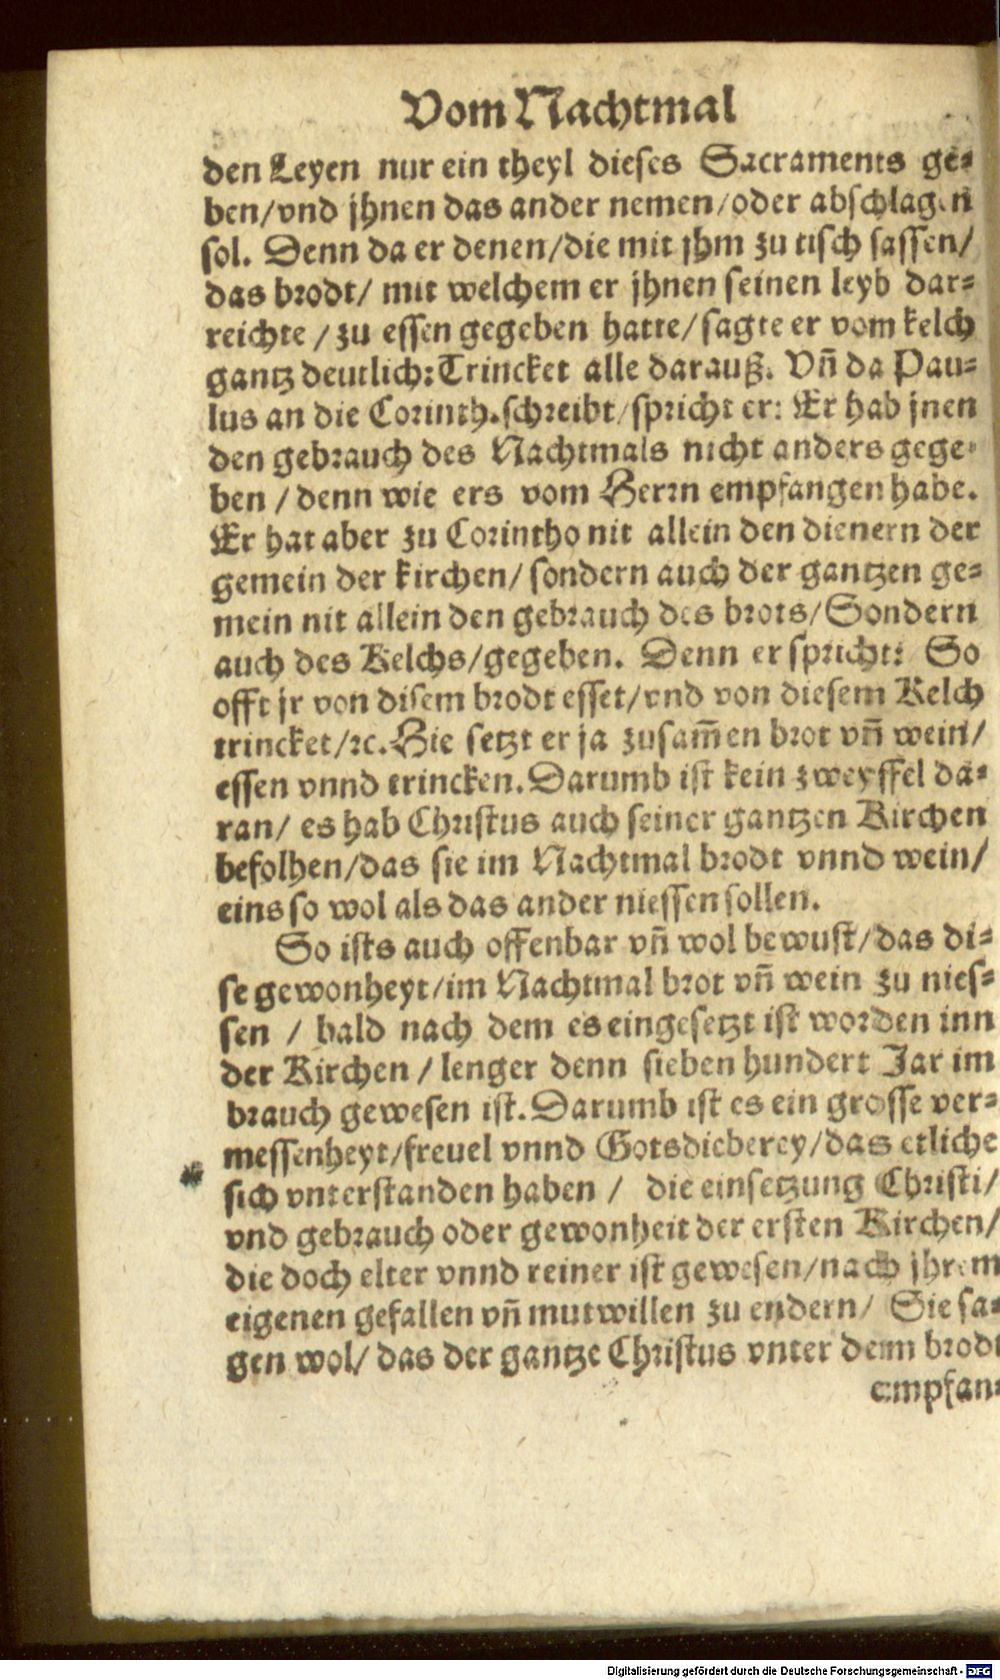 Vom Nachtmal
den Leyen nur ein theyl dieses Sacraments ge⸗
ben/vnd jhnen das ander nemen/oder abschlagen
sol. Denn da er denen/die mit jhm zu tisch sassen/
das brodt/ mit welchem er jhnen seinen leyb dar⸗
reichte /zu essen gegeben hatte/sagte er vom kelch
gantz deutlich: Trincket alle darauß. Vñ da Pau⸗
lus an die Corinth. schreibt/spricht er: Er hab jnen
den gebrauch des Nachtmals nicht anders gege⸗
ben /denn wie ers vom Herrn empfangen habe.
Er hat aber zu Corintho nit allein den dienern der
gemein der kirchen/ sondern auch der gantzen ge⸗
mein nit allein den gebrauch des brots/Sondern
auch des Kelchs/gegeben. Denn er spricht: So
offt jr von disem brodt esset/vnd von diesem Kelch
trincket/ꝛc. Hie setzt er ja zusam̃en brot vñ wein/
essen vnnd trincken. Darumb ist kein zweyffel da⸗
ran/ es hab Christus auch seiner gantzen Kirchen
befolhen/das sie im Nachtmal brodt vnnd wein/
eins so wol als das ander niessen sollen.
So ists auch offenbar vñ wol bewust/das di⸗
se gewonheyt/im Nachtmal brot vñ wein zu nies⸗
sen / bald nach dem es eingesetzt ist worden inn
der Kirchen /lenger denn sieben hundert Jar im
brauch gewesen ist. Darumb ist es ein grosse ver⸗
messenheyt/freuel vnnd Gotsdieberey/das etliche
sich vnterstanden haben / die einsetzung Christi/
vnd gebrauch oder gewonheit der ersten Kirchen/
die doch elter vnnd reiner ist gewesen/nach jhrem
eigenen gefallen vñ mutwillen zu endern/ Sie sa⸗
gen wol/ das der gantze Christus vnter dem brodt
empfan⸗
Digitalisierung gefördert durch die Deutsche Forschungsgemeinschaft - DFG